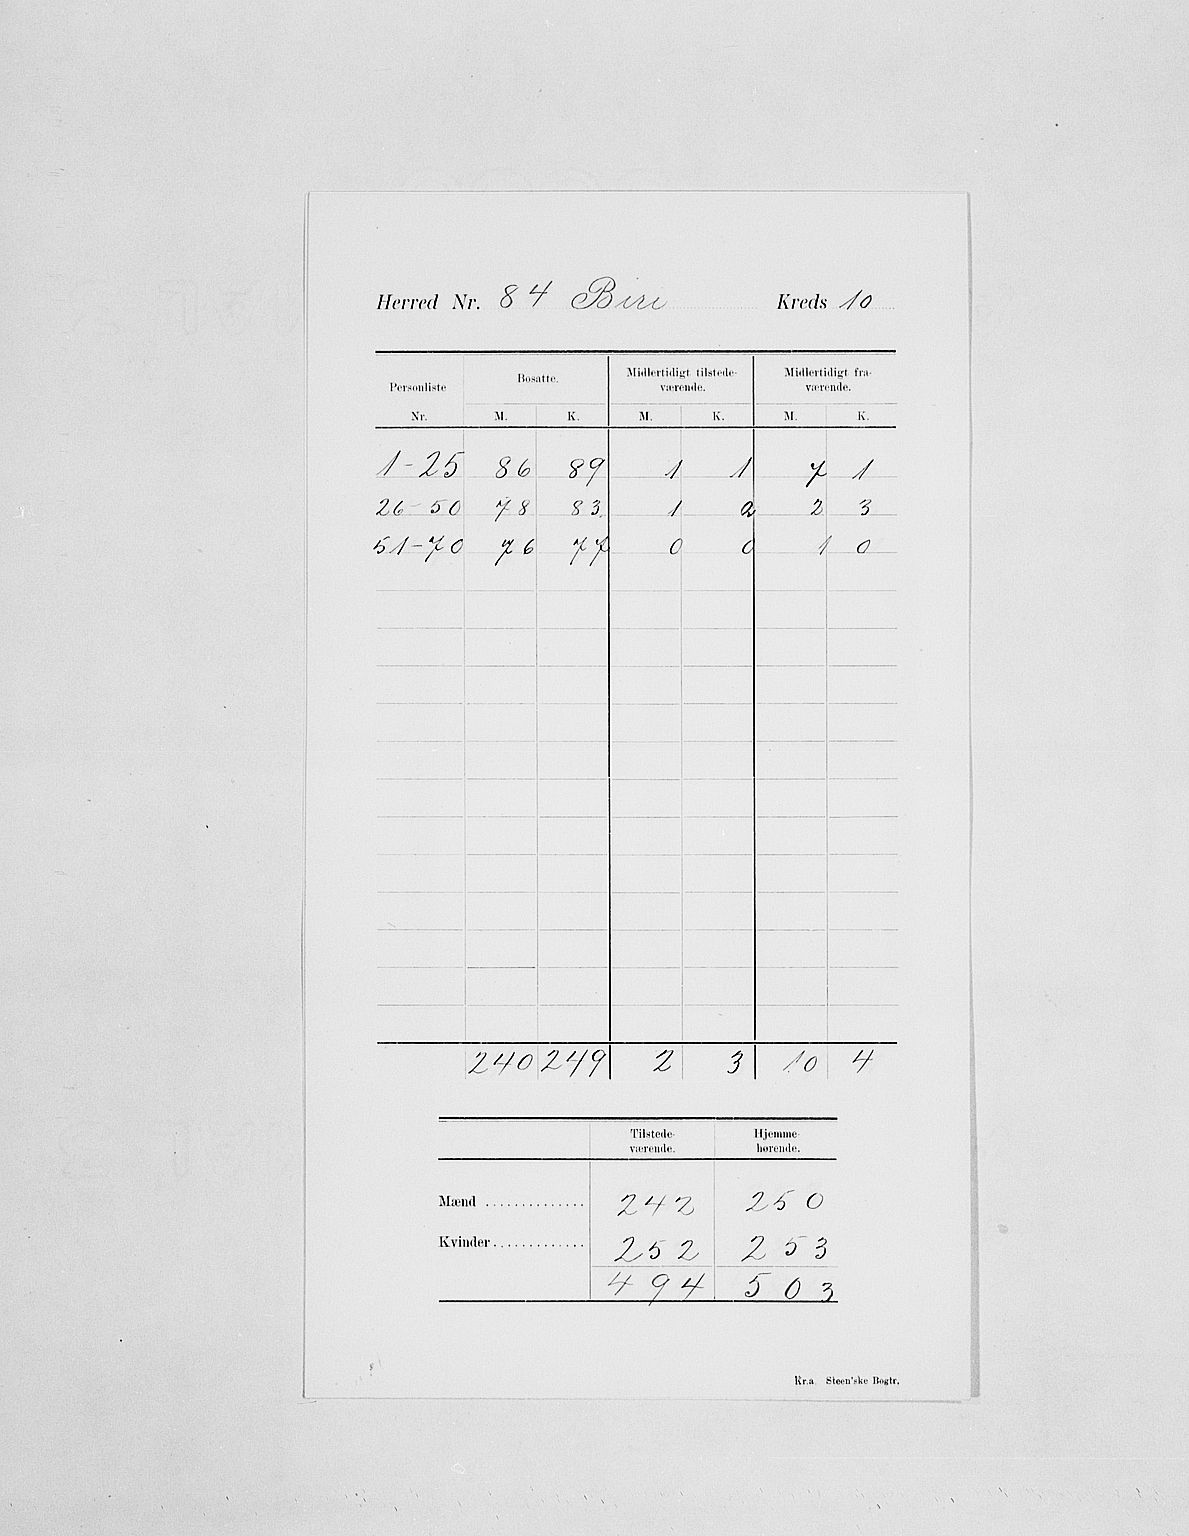 Herred Nr. 84 Biri Kreds 10
Personliste Nr. Bosatte. Midlertidigt tilstede-værende. Midlertidigt fra-værende.
M. K. M. K. M. K.
1-25 86 89 1 1 7 1
26-50 78 83 1 2 2 3
51-70 76 77 0 0 1 0
240 249 2 3 10 4
Tilstede-værende. Hjemme-hørende.
Mænd .............. 242 250
Kvinder ............. 252 253
494 503
Kr.a. Steen'ske Bogtr.